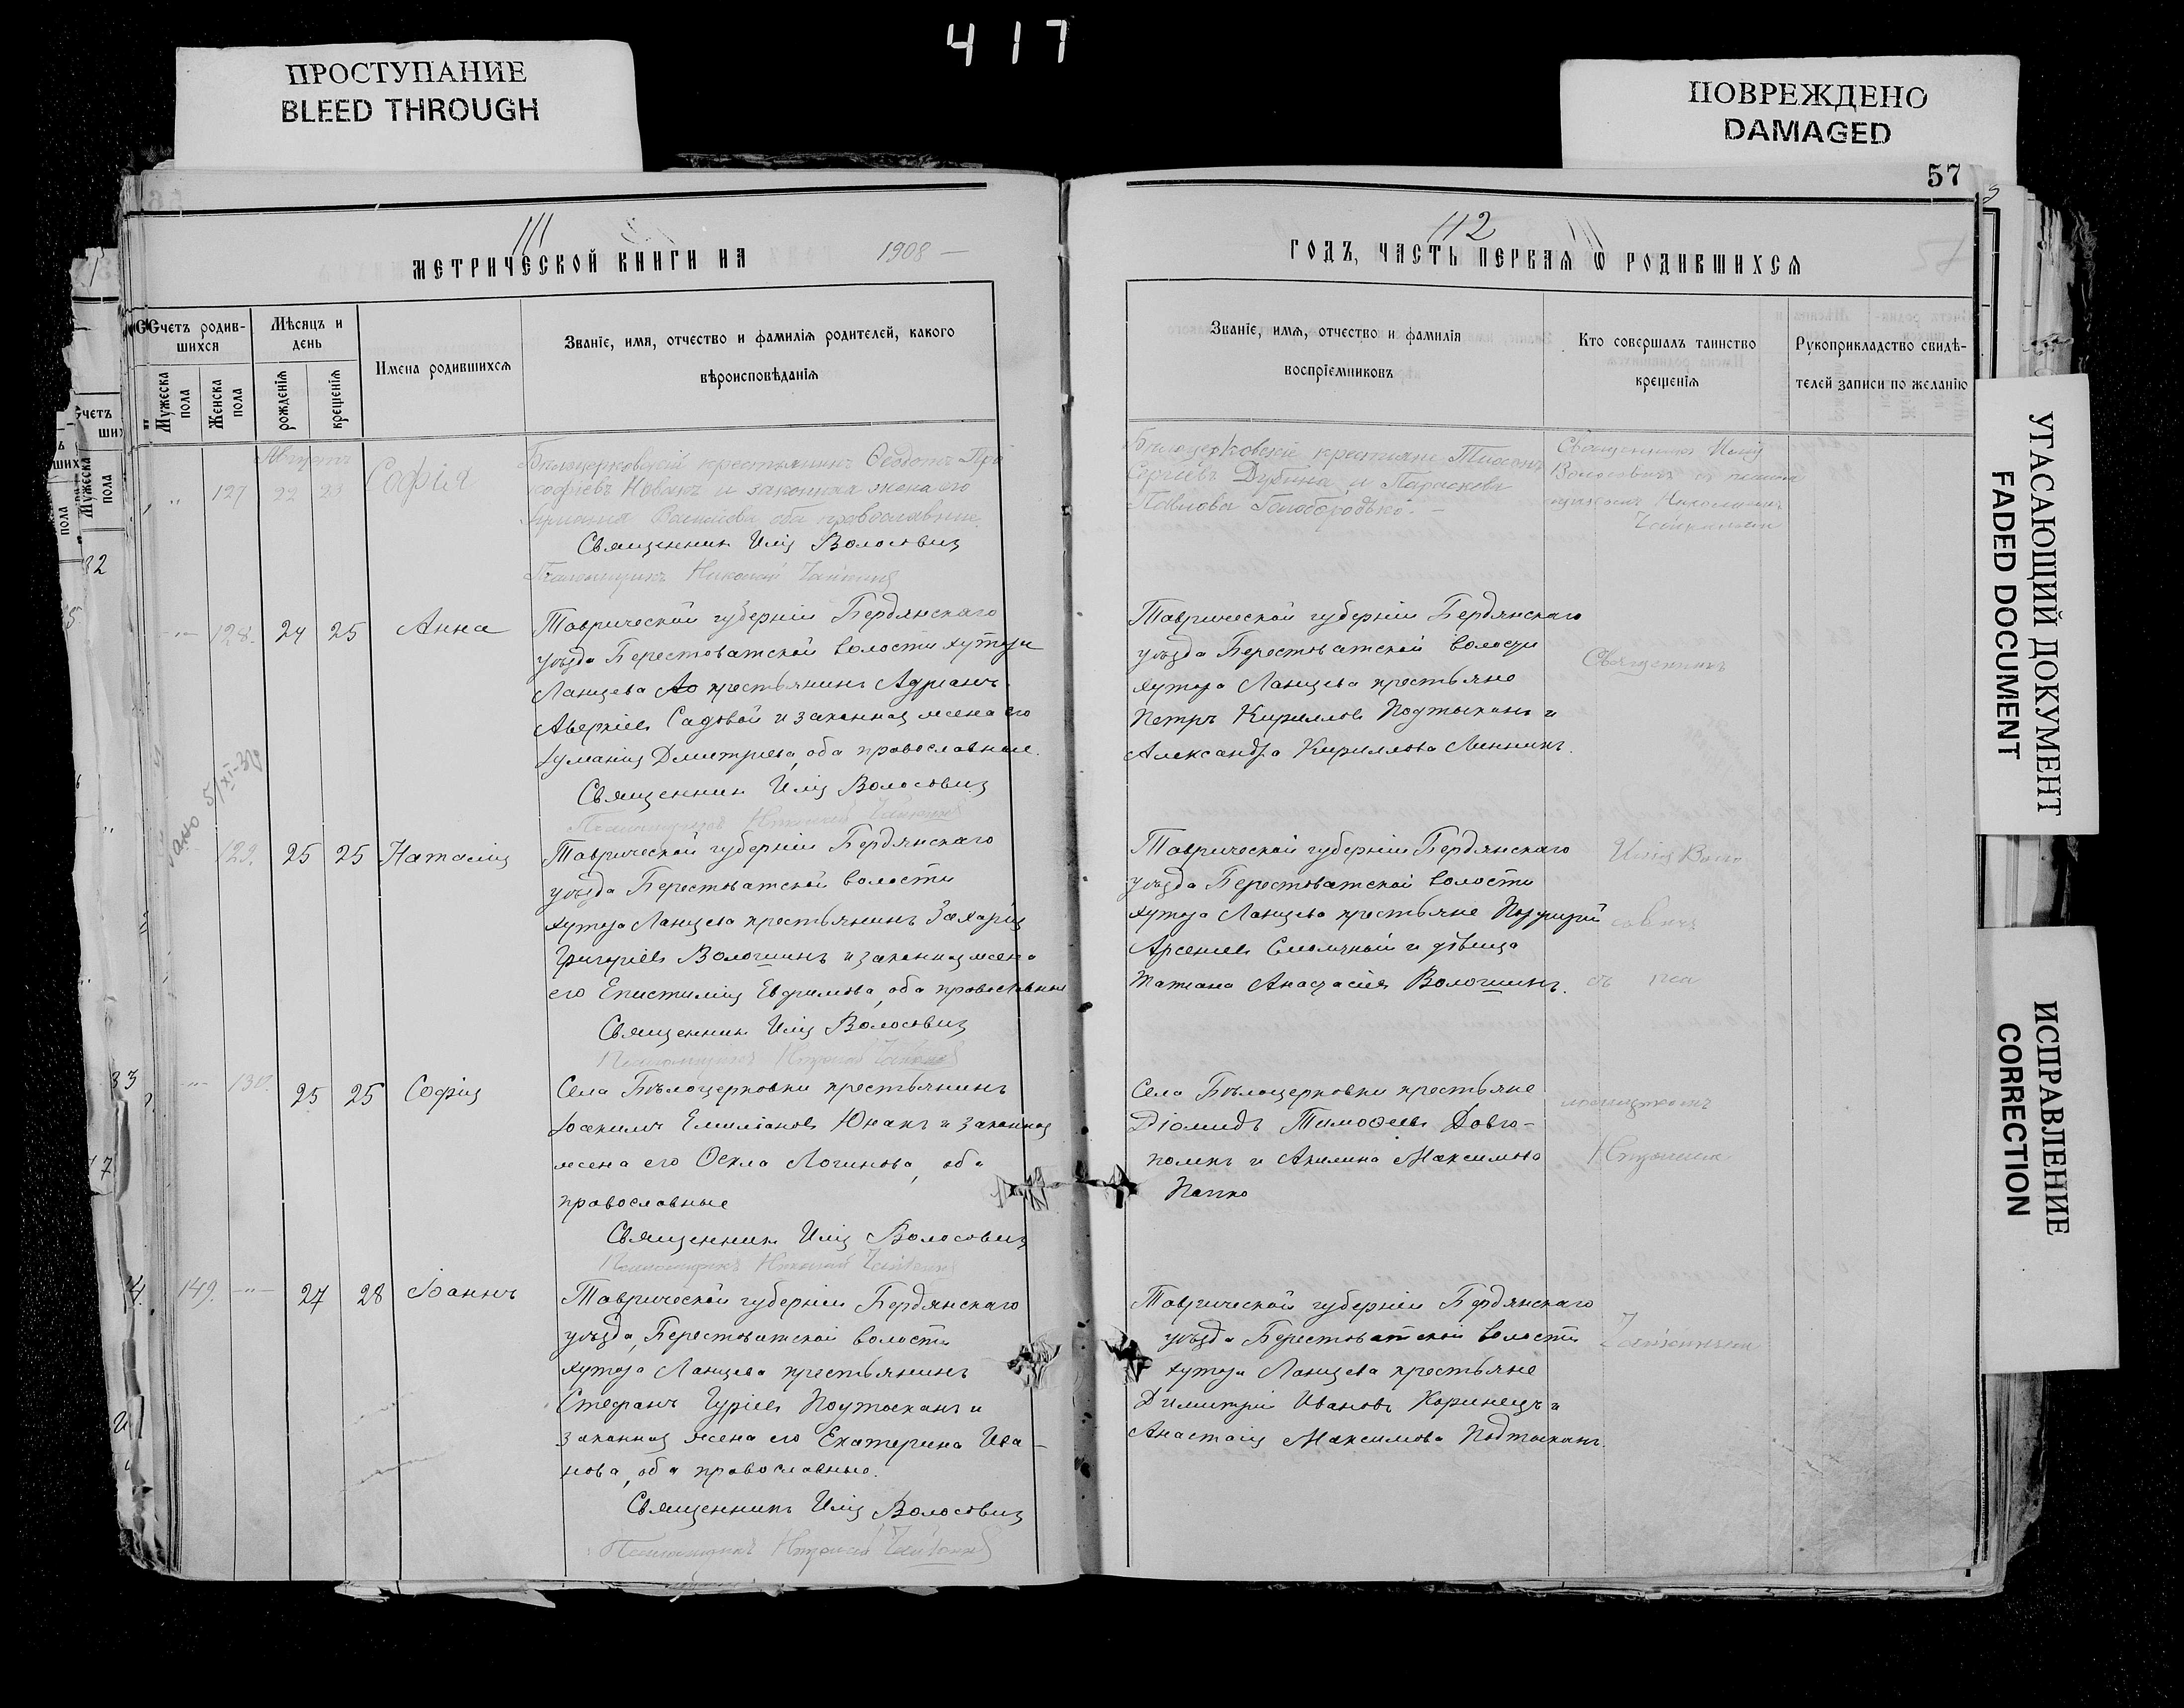 417
ПРОСТУПАНИЕ
BLEED THROUGH
ПОВРЕЖДЕНО
DAMAGED
57
111
МЕТРИЧЕСКОЙ КНИГИ НА 1908 —
Счетъ родив-
шихся
Мѣсяцъ и
день
Мужеска
пола
Женска
пола
рожденія
крещенія
Имена родившихся
Званіе, имя, отчество и фамилія родителей, какого
вѣроисповѣданія
Августъ
127 22 23 Софія
Бѣлоцерковскій крестьянинъ Ѳеодотъ Про
кофіевъ Новакъ и законная жена его
оба православные.
Священникъ Илія Волосовичъ
Псаломщикъ Николай
128. 24 25 Анна
Таврической губерніи Бердянскаго
уѣзда Берестоватской волости хутора
Ланцева крестьянинъ Адріанъ
Аверкіевъ Садовой и законная жена его
Дмитріева, оба православные.
Священникъ Илія Волосовичъ
Псаломщикъ Николай
129. 25 25 Наталія
Таврической губерніи Бердянскаго
уѣзда Берестоватской волости
хутора Ланцева крестьянинъ Захарія
Григоріевъ Волошинъ и законная жена
его Епистимія Евфимова, оба православные
Священникъ Илія Волосовичъ
Псаломщикъ
130. 25 25 Софія
Села Бѣлоцерковки крестьянинъ
Іоакимъ Емиліановъ Юнакъ и законная
жена его Ѳекла Логинова, оба
православные
Священникъ Илія Волосовичъ
Псаломщикъ Николай
149. 27 28 Іоаннъ
Таврической губерніи Бердянскаго
уѣзда, Берестоватской волости
хутора Ланцева крестьянинъ
Стефанъ Гуріевъ Подтыканъ и
законная жена его Екатерина Ива-
нова, оба православные.
Священникъ Илія Волосовичъ
Псаломщикъ
112
ГОДЪ, ЧАСТЬ ПЕРВАЯ Ѡ РОДИВШИХСЯ
Званіе, имя, отчество и фамилія
воспріемниковъ
Кто совершалъ таинство
крещенія
Рукоприкладство свидѣ-
телей записи по желанію
Бѣлоцерковскіе крестьяне Тихонъ
Сергіевъ Дубина и Параскева
Павлова Голобородько. —
Священникъ Илія
Волосовичъ съ псалом
щикомъ Николаемъ
Таврической губерніи Бердянскаго
уѣзда Берестоватской волости
хутора Ланцева крестьяне
Петръ Кирилловъ Подтыканъ и
Александра Кириллова Линникъ.
Таврической губерніи Бердянскаго
уѣзда Берестоватской волости
хутора Ланцева крестьяне Порфирій
Арсеніевъ Смолчный и дѣвица
Татіана Анастасіева Волошинъ.
Села Бѣлоцерковки крестьяне
Діомидъ Тимоѳеевъ Довго-
поликъ и Акилина Максимова
Папко
Таврической губерніи Бердянскаго
уѣзда Берестоватской волости
хутора Ланцева крестьяне
Димитрій Ивановъ Коринецъ и
Анастасія Максимова Подтыканъ.
Священникъ
Илія Воло
совичъ
съ пса
ломщикомъ
УГАСАЮЩИЙ ДОКУМЕНТ
FADED DOCUMENT
ИСПРАВЛЕНИЕ
CORRECTION